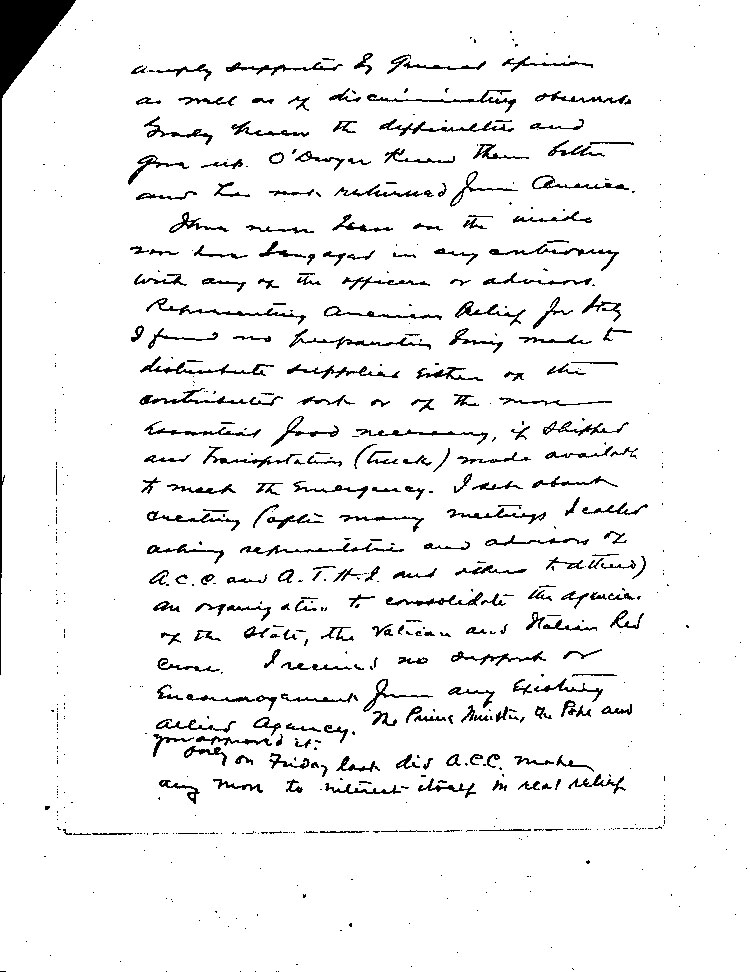 amply supported by general opinion
as well as of discriminating observers
Grady knew the difficulties and
gave up. O'Dwyer knew them better
and has not returned from America.
I have never been on the inside
nor have I engaged in any controversy
with any of the officers or advisors.
Representing American Relief for Italy
I found no preparation being made to
distribute supplies either of the
contributed sort or of the more
essential food necessary, if shipped
and transportation (trucks) made available
to meet the emergency. I set about
creating (after many meetings I called
asking representatives and advisors of
A.C.C. and A.F.H.Q. and others to attend)
an organization to consolidate the agencies
of the State, the Vatican and Italian Red
Cross. I received no support or
encouragement from any existing
Allied Agency. The Prime Minister, the Pope and
you approved it.
Only on Friday last did A.C.C. make
any move to interest itself in real relief